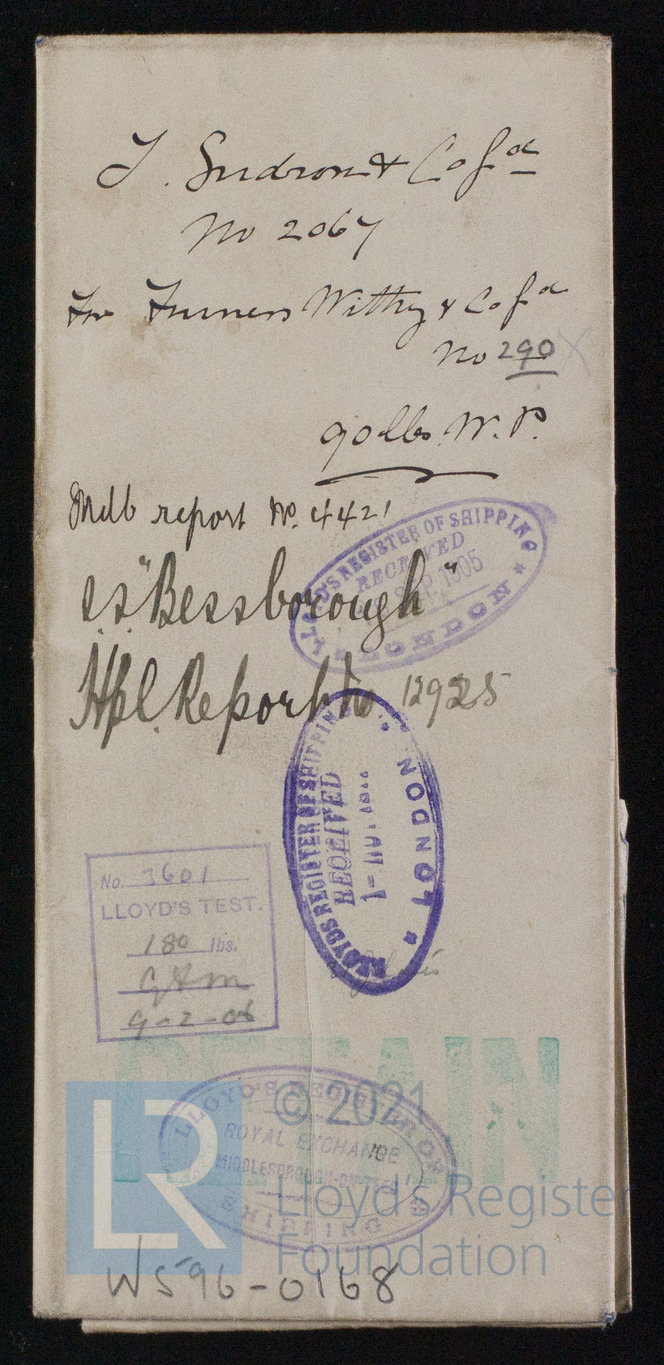 T. Sudron & Co Ld
No 2067
For Furness Withy & Co Ld
No 290 X
90 lbs W.P.
Mdb report No. 4421
LLOYD'S REGISTER OF SHIPPING
RECEIVED
1905
* LONDON *
ss "Bessborough"
Hpl. Report No 12925
LLOYDS REGISTER OF SHIPPING
RECEIVED
LONDON
No. 3601
LLOYD'S TEST.
180 lbs.
GAM
9-2-06
RETAIN
LLOYD'S REGISTER OF
ROYAL EXCHANGE
MIDDLESBROUGH-ON-TEES
SHIPPING
LR
© 2021
Lloyd's Register
Foundation
WS96-0168